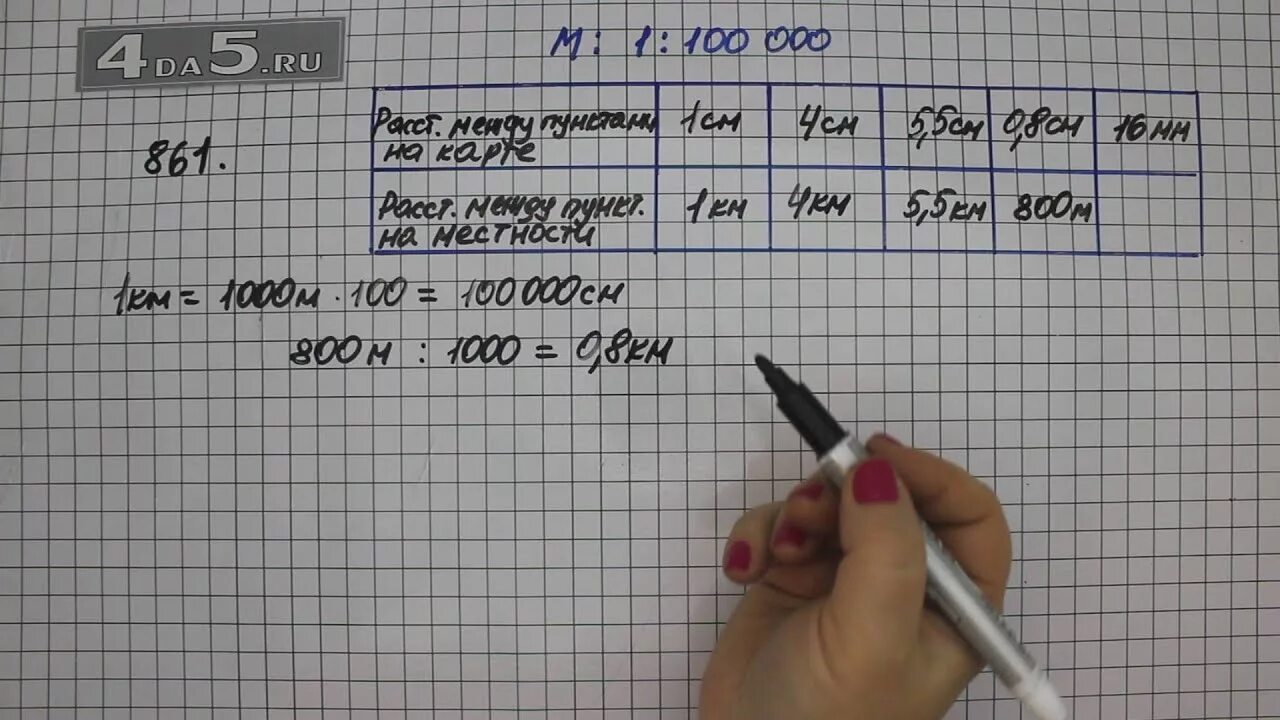 4DA5.RU
М: 1 : 100 000
861.
Расст. между пунктами на карте 1см 4см 5,5см 0,8см 16мм
Расст. между пункт. на местности 1км 4км 5,5км 800м
1км = 1000м · 100 = 100 000см
800м : 1000 = 0,8км